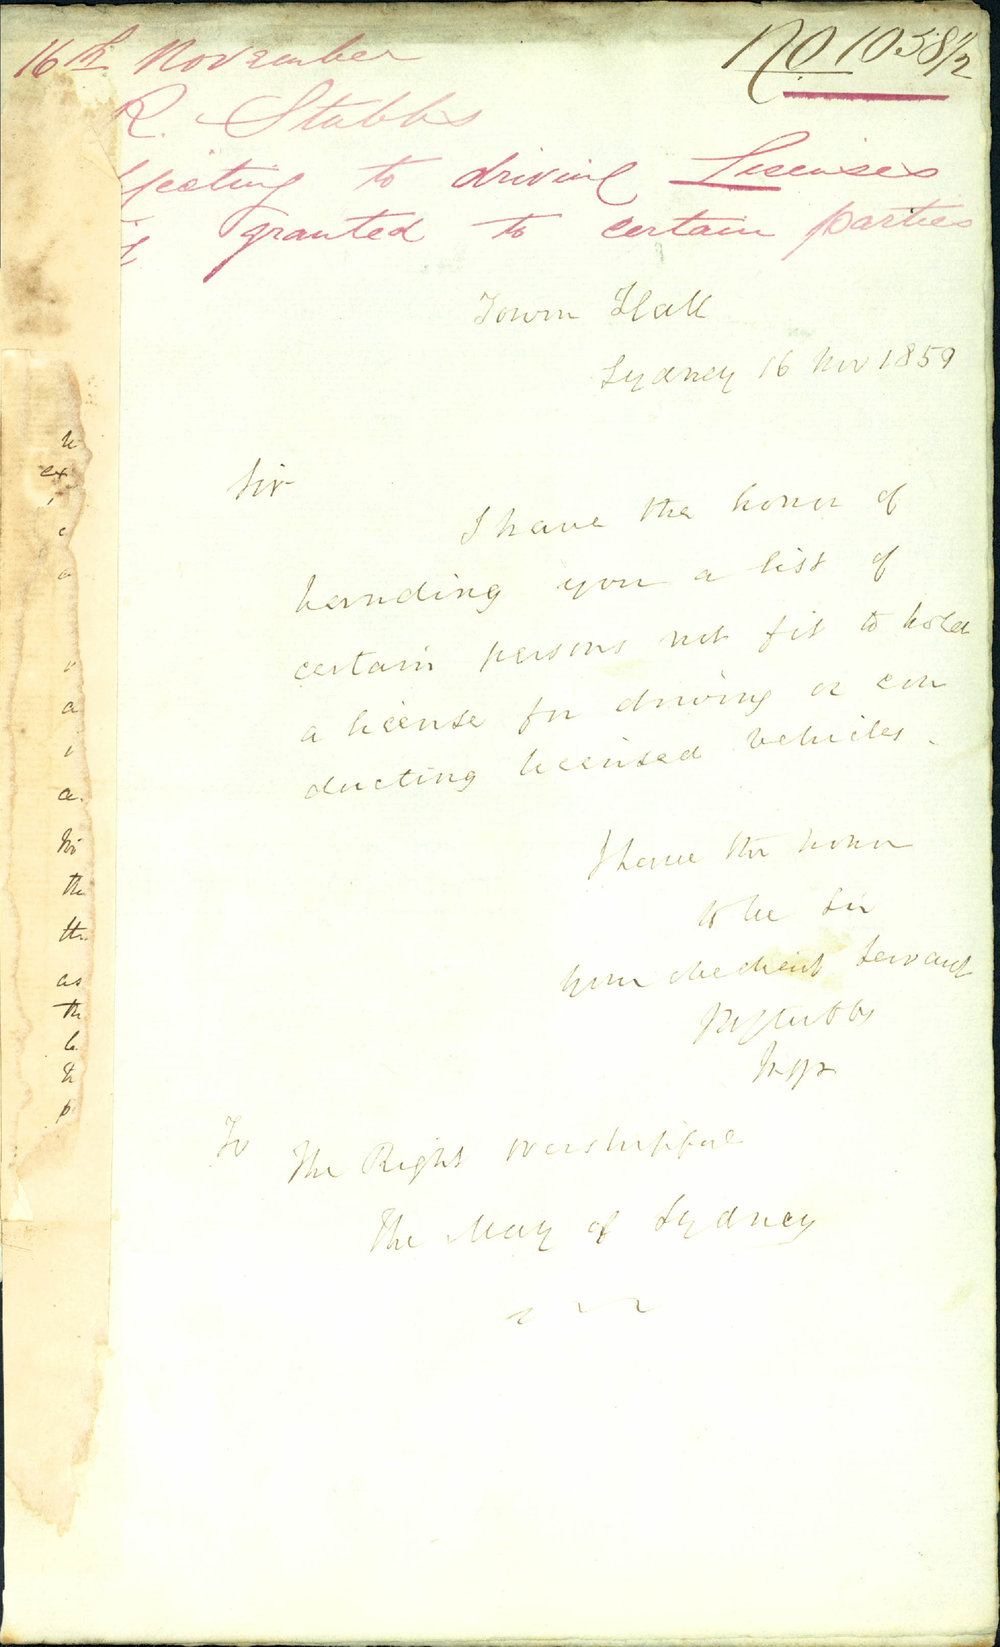 16th November
No 1058½
R. Stubbs
jecting to driving Licenses
granted to certain parties
Town Hall
Sydney 16 Nov 1859
Sir
I have the honor of
handing you a list of
certain persons not fit to hold
a license for driving or con
ducting licensed vehicles.
I have the honor
to be Sir
Your obedient Servant
R Stubbs
Inspr
To
The Right Worshipful
The May of Sydney
ex
a
a
a.
the
th
as
th